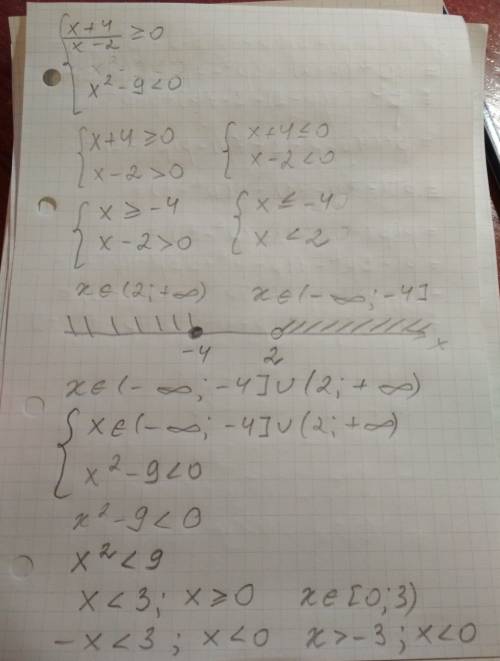 { (x+4)/(x-2) ≥ 0
{ x² - 9 < 0
{ x+4 ≥ 0 { x+4 ≤ 0
{ x-2 > 0 { x-2 < 0
{ x ≥ -4 { x ≤ -4
{ x-2 > 0 { x < 2
x∈(2; +∞) x∈(-∞; -4]
-4 2 x
x∈(-∞; -4]∪(2; +∞)
{ x∈(-∞; -4]∪(2; +∞)
{ x² - 9 < 0
x² - 9 < 0
x² < 9
x < 3; x ≥ 0 x∈[0; 3)
-x < 3; x < 0 x > -3; x < 0